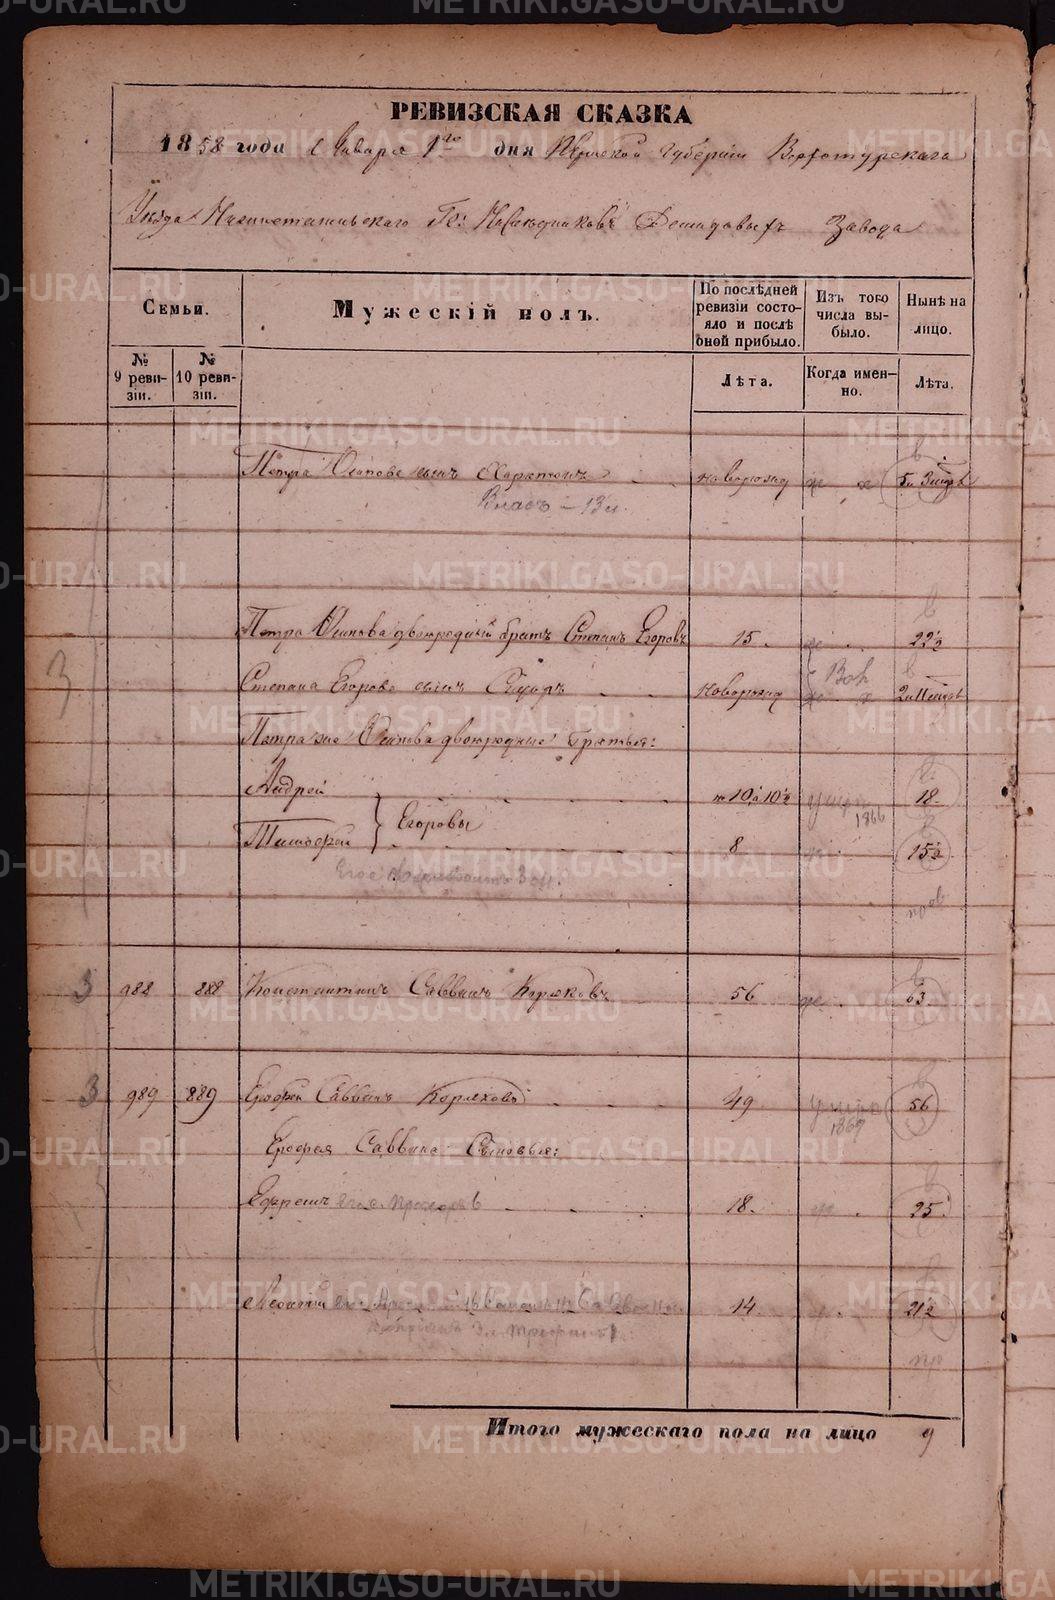 РЕВИЗСКАЯ СКАЗКА
1858 года Января 1го дня Пермской Губернiи Верхотурскаго
Уѣзда Нижнетагильскаго Гг: Наслѣдниковъ Демидовыхъ Завода
Семьи.
Мужескій полъ.
По послѣдней ревизіи состояло и послѣ оной прибыло.
Изъ того числа выбыло.
Нынѣ на лицо.
№ 9 ревизіи.
№ 10 ревизіи.
Лѣта.
Когда именно.
Лѣта.
Петра Осипова сынъ Харитонъ новорожд 5 и 3 мѣс
Власъ - 13 л.
Петра Осипова двоюродный братъ Степанъ Егоровъ 15. 22½
Степана Егорова сынъ новорожд
Петра же Осипова двоюродные братья:
Андрей 10½ умеръ 1866 18.
Тимофей 8 15½
Егоровы
3 988 888 Константинъ Саввинъ Коряковъ 56 63.
3 989 889 Ерофей Саввинъ Коряковъ 49 умеръ 1869 56
Ерофея Саввина Сыновья:
Ефремъ 18. 25.
Леонтій 14. 21½
Итого мужескаго пола на лицо 9
METRIKI.GASO-URAL.RU